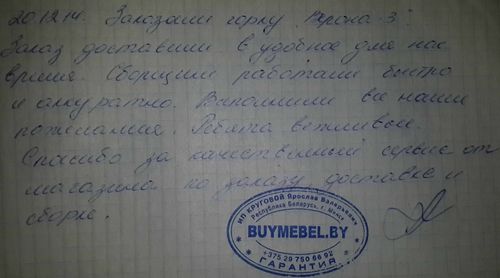 20.12.14. Заказали горку "Верона-3".
Заказ доставили в удобное для нас
время. Сборщики работали быстро
и аккуратно. Выполнили все наши
пожелания. Ребята вежливые.
Спасибо за качественный сервис от
магазина по заказу, доставке и
сборке.
ИП КРУГОВОЙ Ярослав Валерьевич
Республика Беларусь, г. Минск
BUYMEBEL.BY
+375 29 750 66 92
ГАРАНТИЯ